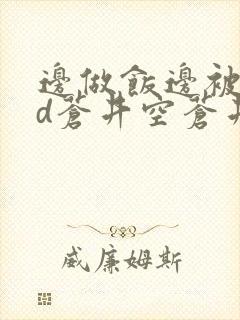 邊做飯邊被
d蒼井空蒼井
威廉姆斯